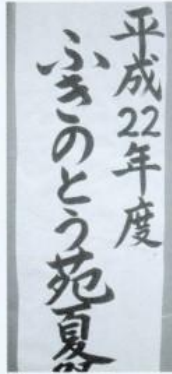 平成22年度
ふきのとう苑夏